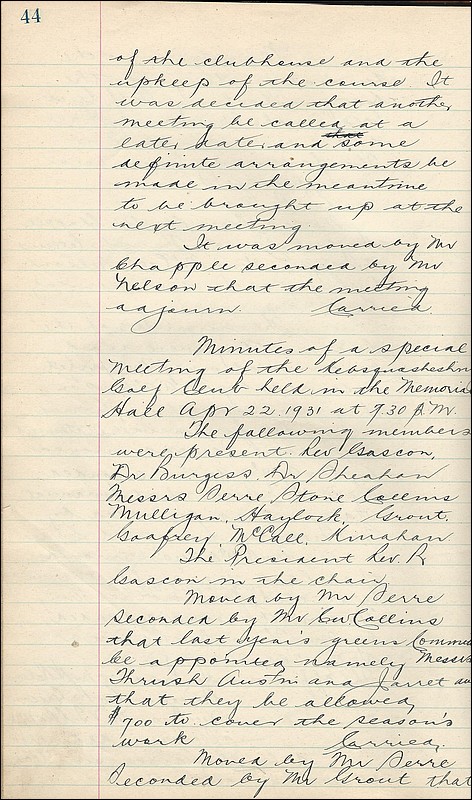 44
of the clubhouse and the
upkeep of the course It
was decided that another
meeting be called at a
later date and that some
definite arrangements be
made in the meantime
to be brought up at the
next meeting.
It was moved by Mr
Chapple seconded by Mr
Nelson that the meeting
adjourn. Carried.
Minutes of a special
meeting of the
Golf Club held in the Memorial
Hall Apr 22, 1931 at 7.30 P.M.
The following members
were present. Rev Gascon,
Dr Burgess, Dr Sheahan
Messrs Serre Stone Collins
Mulligan, Haylock, Grout,
Goafrey, McCall, Kinahan.
The President Rev. R
Gascon in the chair
Moved by Mr Serre
seconded by Mr Collins
that last year's greens Commi
be appointed namely Messrs
Thrush Austin and Jarret an
that they be allowed
$700 to cover the season's
work Carried.
Moved by Mr Serre
Seconded by Mr Grout that